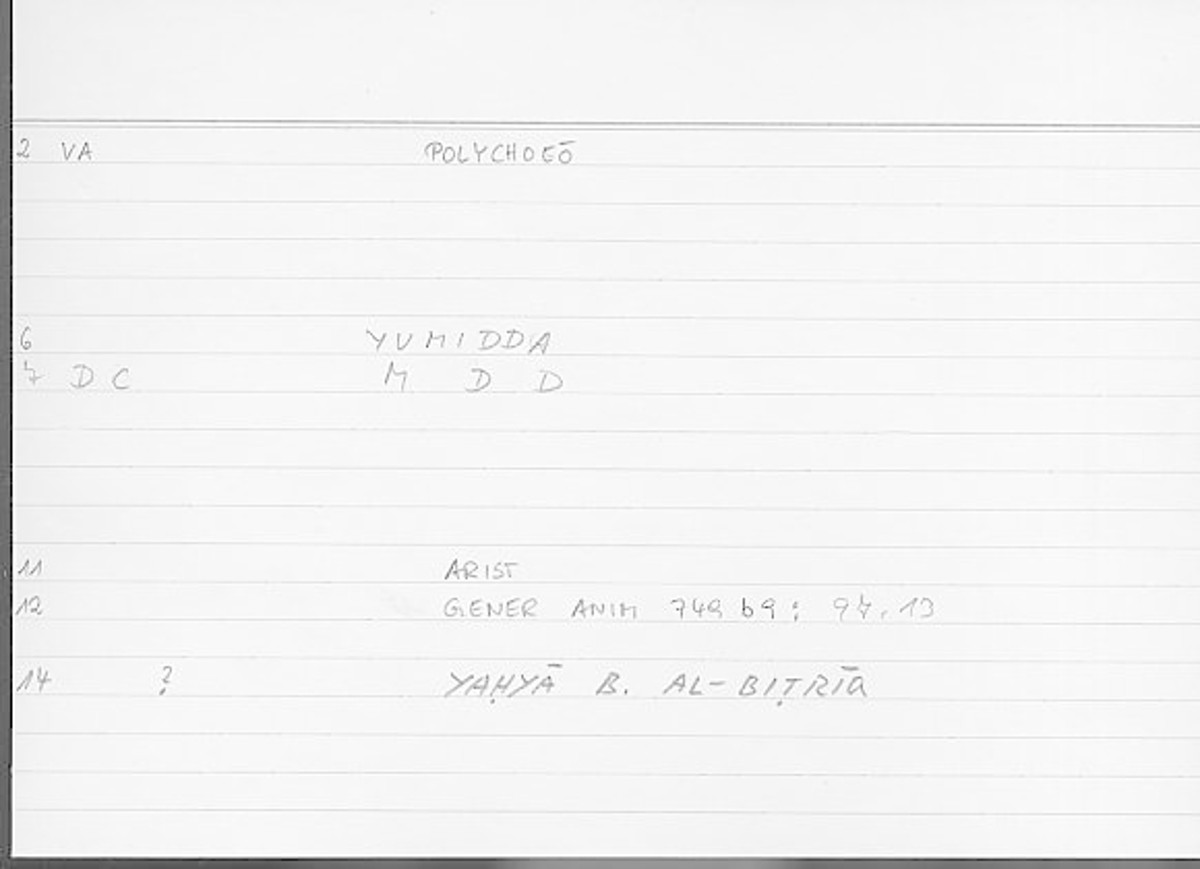 2 VA POLYCHOEŌ
6 YUMIDDA
7 DC M D D
11 ARIST
12 GENER ANIM 749 b9 : 97.13
14 ? YAḤYĀ B. AL-BIṬRĪQ